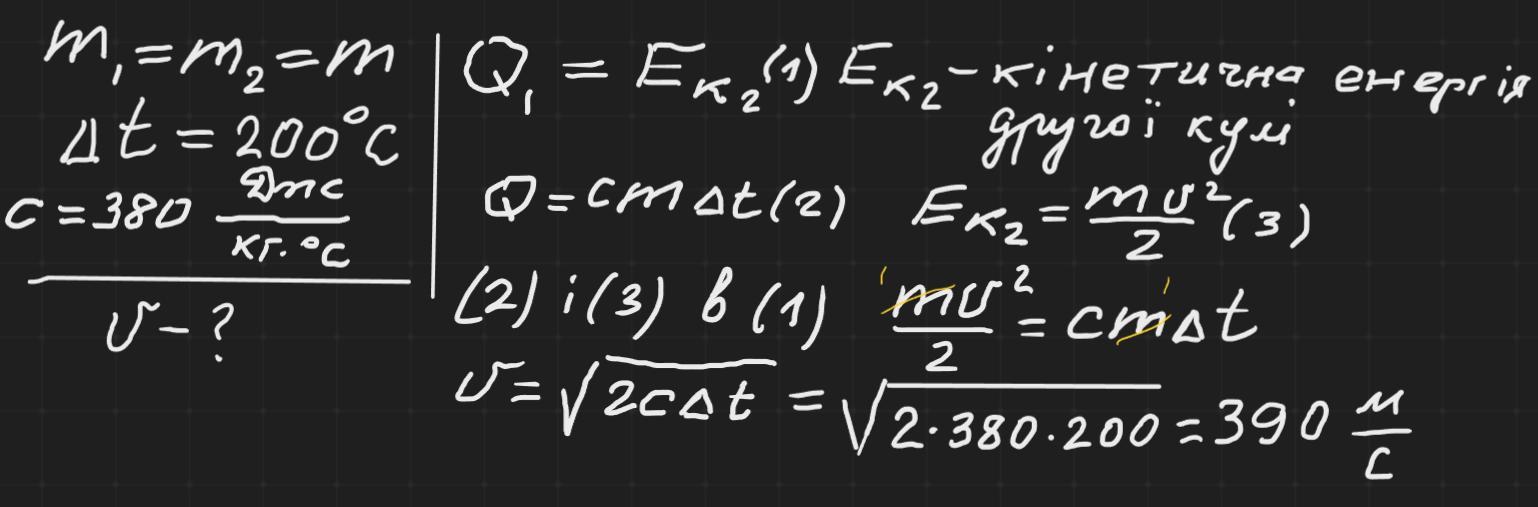 m₁ = m₂ = m
Δt = 200°C
c = 380 Дж/кг·°C
υ - ?
Q₁ = Eк₂ (1) Eк₂ - кінетична енергія
другої кулі
Q = cmΔt (2) Eк₂ = mυ²/2 (3)
(2) і (3) в (1) mυ²/2 = cmΔt
υ = √(2cΔt) = √(2·380·200) = 390 м/с